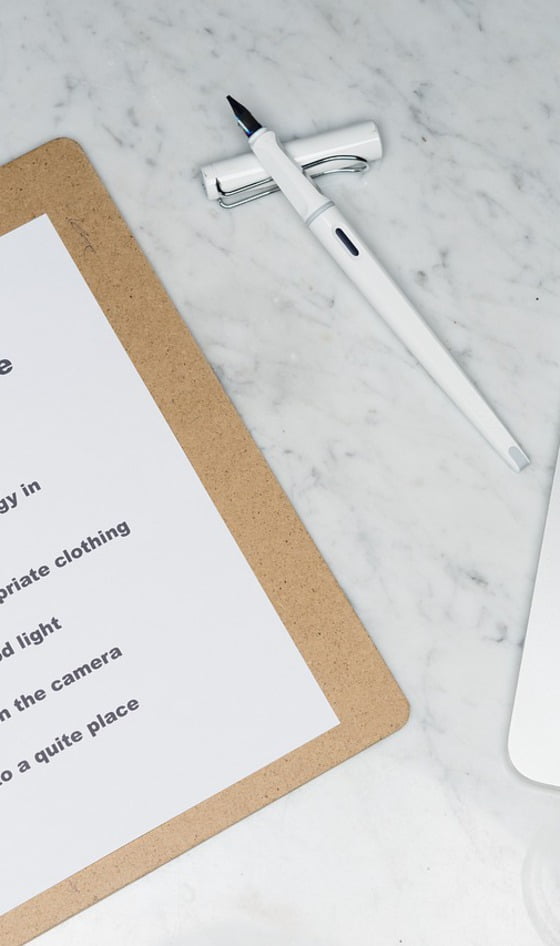 e
gy in
priate clothing
d light
n the camera
o a quite place